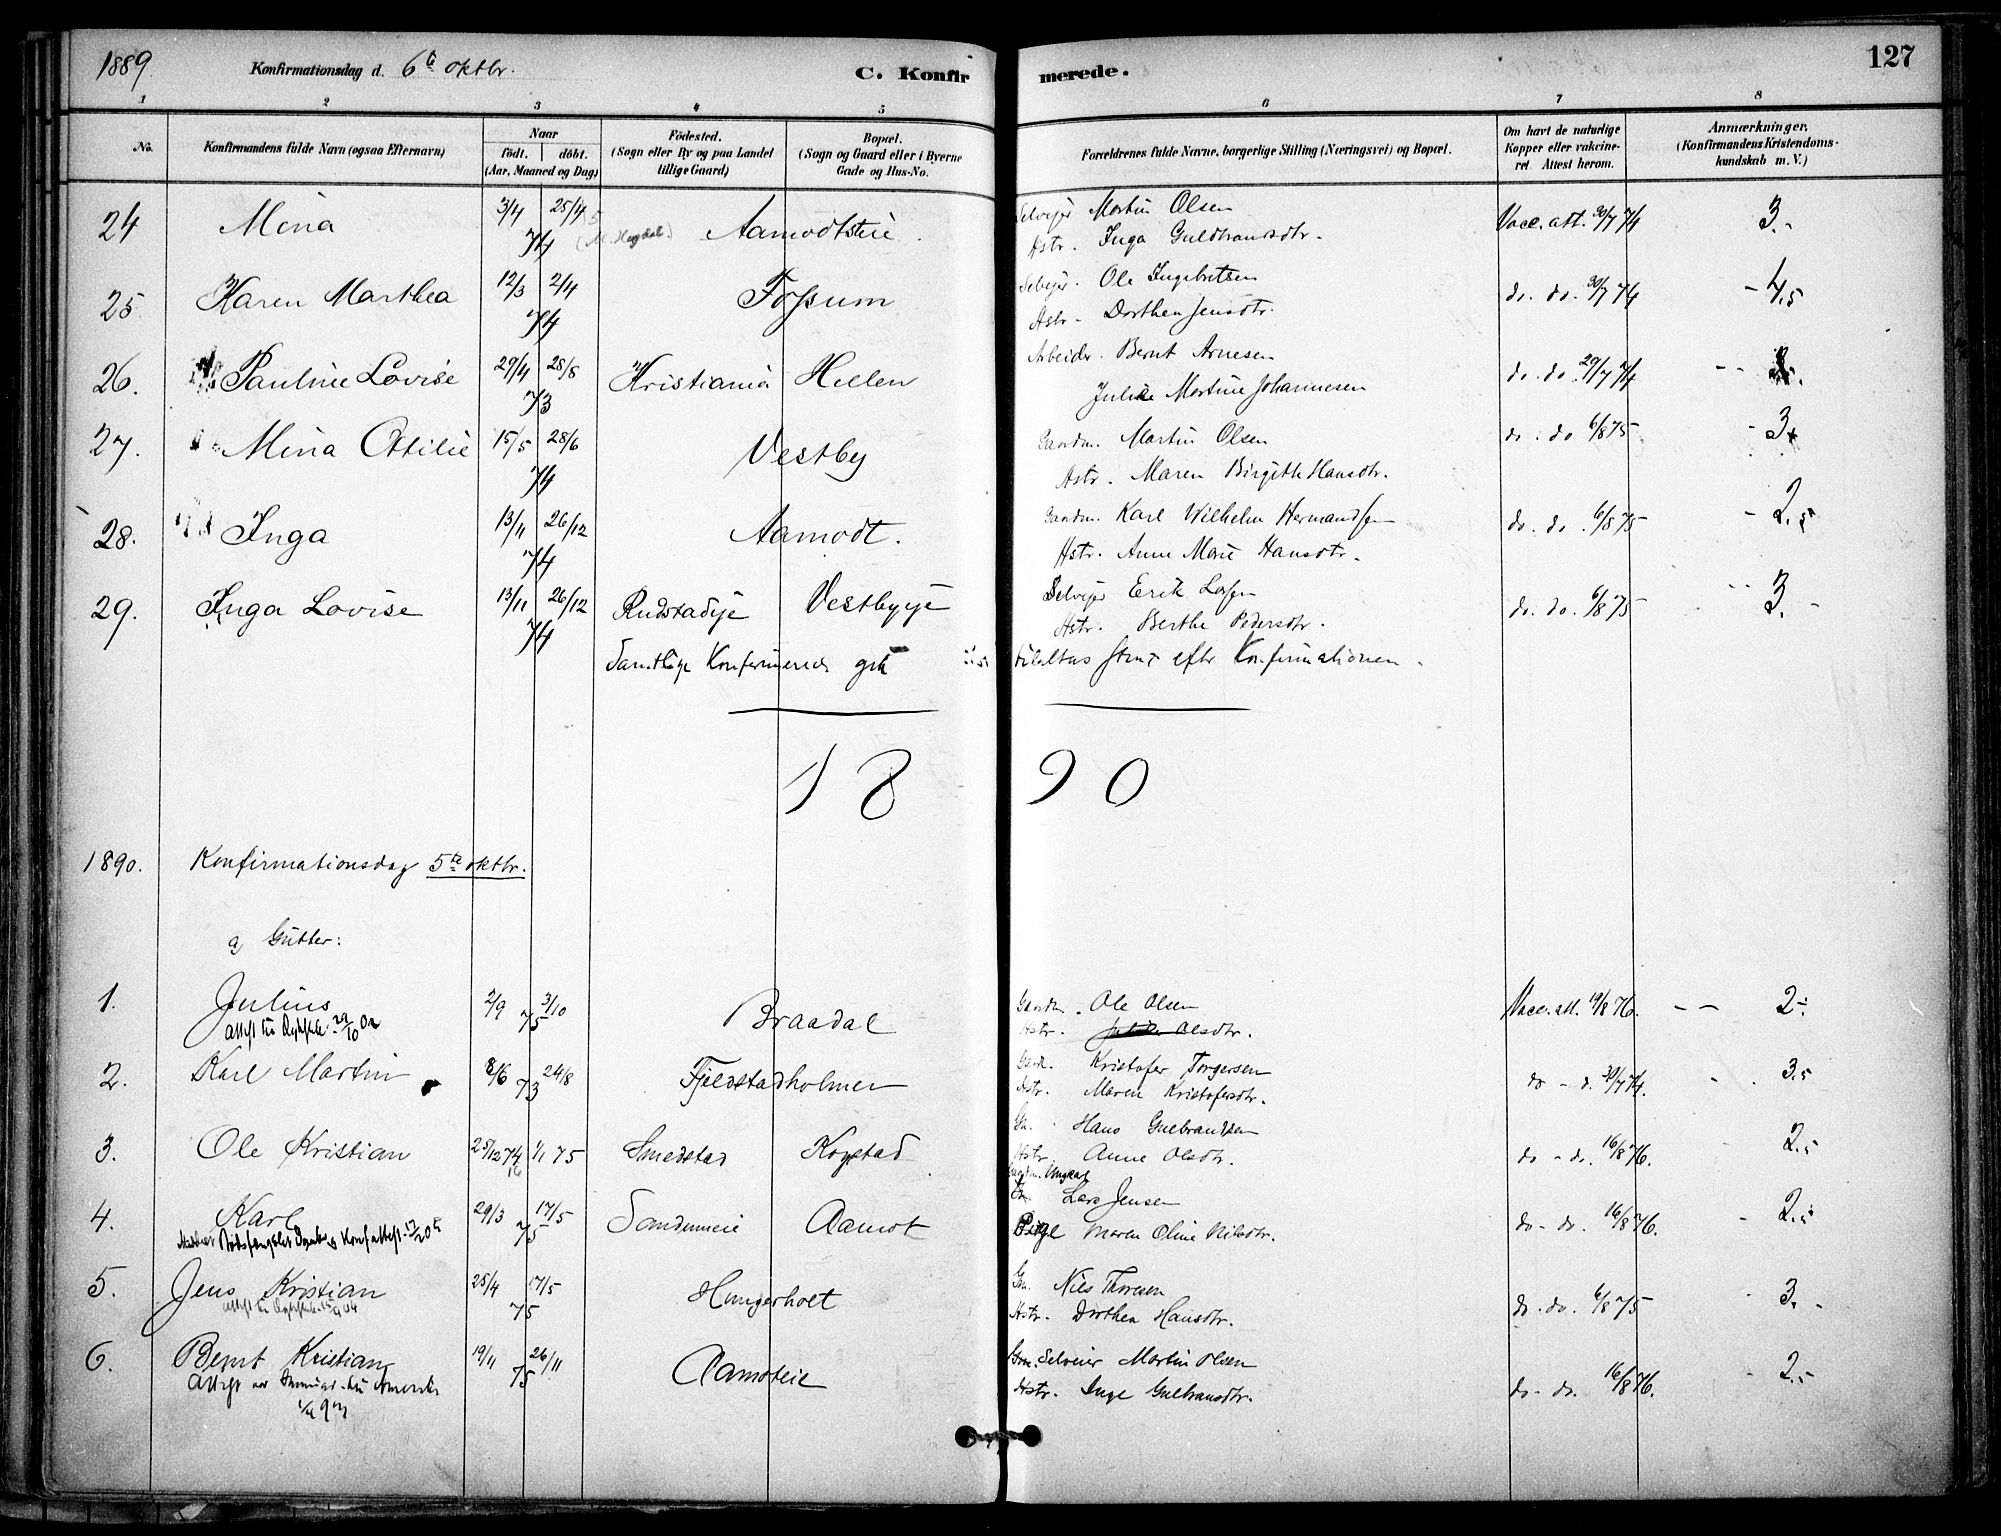 1889. Konfirmationsdag d. 6te oktbr. C. Konfirmerede. 127
1 2 3 4 5 6 7 8
No. Konfirmandens fulde Navn (ogsaa Efternavn) Naar födt. döbt. (Aar, Maaned og Dag) Födested. (Sogn eller By og paa Landet tillige Gaard) Bopæl. (Sogn og Gaard eller i Byerne Gade og Hus-No. Forældrenes fulde Navne, borgerlige Stilling (Næringsvei) og Bopæl. Om havt de naturlige Kopper eller vakcineret Attest herom. Anmærkninger. (Konfirmandens Kristendomskundskab m. V.)
24 Mina 3/4 25/4 74 Aamodtseie. Selvejer Martin Olsen Vacc. att. 30/7 74 3.-
Hstr. Inga Guldbrandsdtr.
25. Karen Marthea 12/3 2/4 74 Fossum Selvejer. Ole Ingebretsen do. do. 30/7 74 - 4.5
Hstr. Dorthea Jensdtr.
26. Pauline Lovise 29/4 28/8 73 Kristiania Hellen Arbeider. Bernt Arnesen do. do. 29/7 74
Julie Martine Johannesen
27. Mina Ottilie 15/5 28/6 74 Vestby Gaardm. Martin Olsen do. do 6/8 75 - 3
Hstr. Maren Birgitte Hansdtr.
28. Inga 13/11 26/12 74 Aamodt. Gaardm. Karl Wilhelm Hermandsen do. do. 6/8 75 - 2.5
Hstr. Anne Marie Hansdtr.
29. Inga Lovise 13/11 26/12 74 Rudstadeje Vestbyeje Selvejer Erik Larsen do. do. 6/8 75 3.-
Hstr. Berthe Pedersdtr.
Samtlige Konfirmerede gik til alters strax efter Konfirmationen.
1890
1890. Konfirmationsdag 5te oktbr.
a, Gutter:
1. Julius 2/9 3/10 75 Braadal Gaardm. Ole Olsen Vacc. att. 19/8 76. 2
Hstr. Olsdtr.
2. Karl Martin 8/6 24/8 73 Fjeldstadholmen Kristofer Torgersen do - d. 30/7 74. 3.5
Hstr. Maren Kristofersdtr.
3. Ole Kristian 25/12 74 1/1 75 Smedstad Kogstad Gm. Hans Gulbrandsen do - do. 16/8 76. 2.5
Hstr. Anne Olsdtr.
4. Karl 29/3 17/5 75 Sandumeie Aamot Ungkarl Lars Jensen do - do. 16/8 76. - 2.5
Pige Maren Oline Nilsdtr.
5. Jens Kristian 25/4 17/5 75 Hungerholt Gm. Niels Thoresen do. do. 6/8 75 3.-
Hstr. Dorthea Hansdtr.
6. Bernt Kristian 19/11 26/11 75 Aamoteie Selveier Martin Olsen do - do. 16/8 76. - 2.5
Hstr. Inge Gulbrandsdtr.